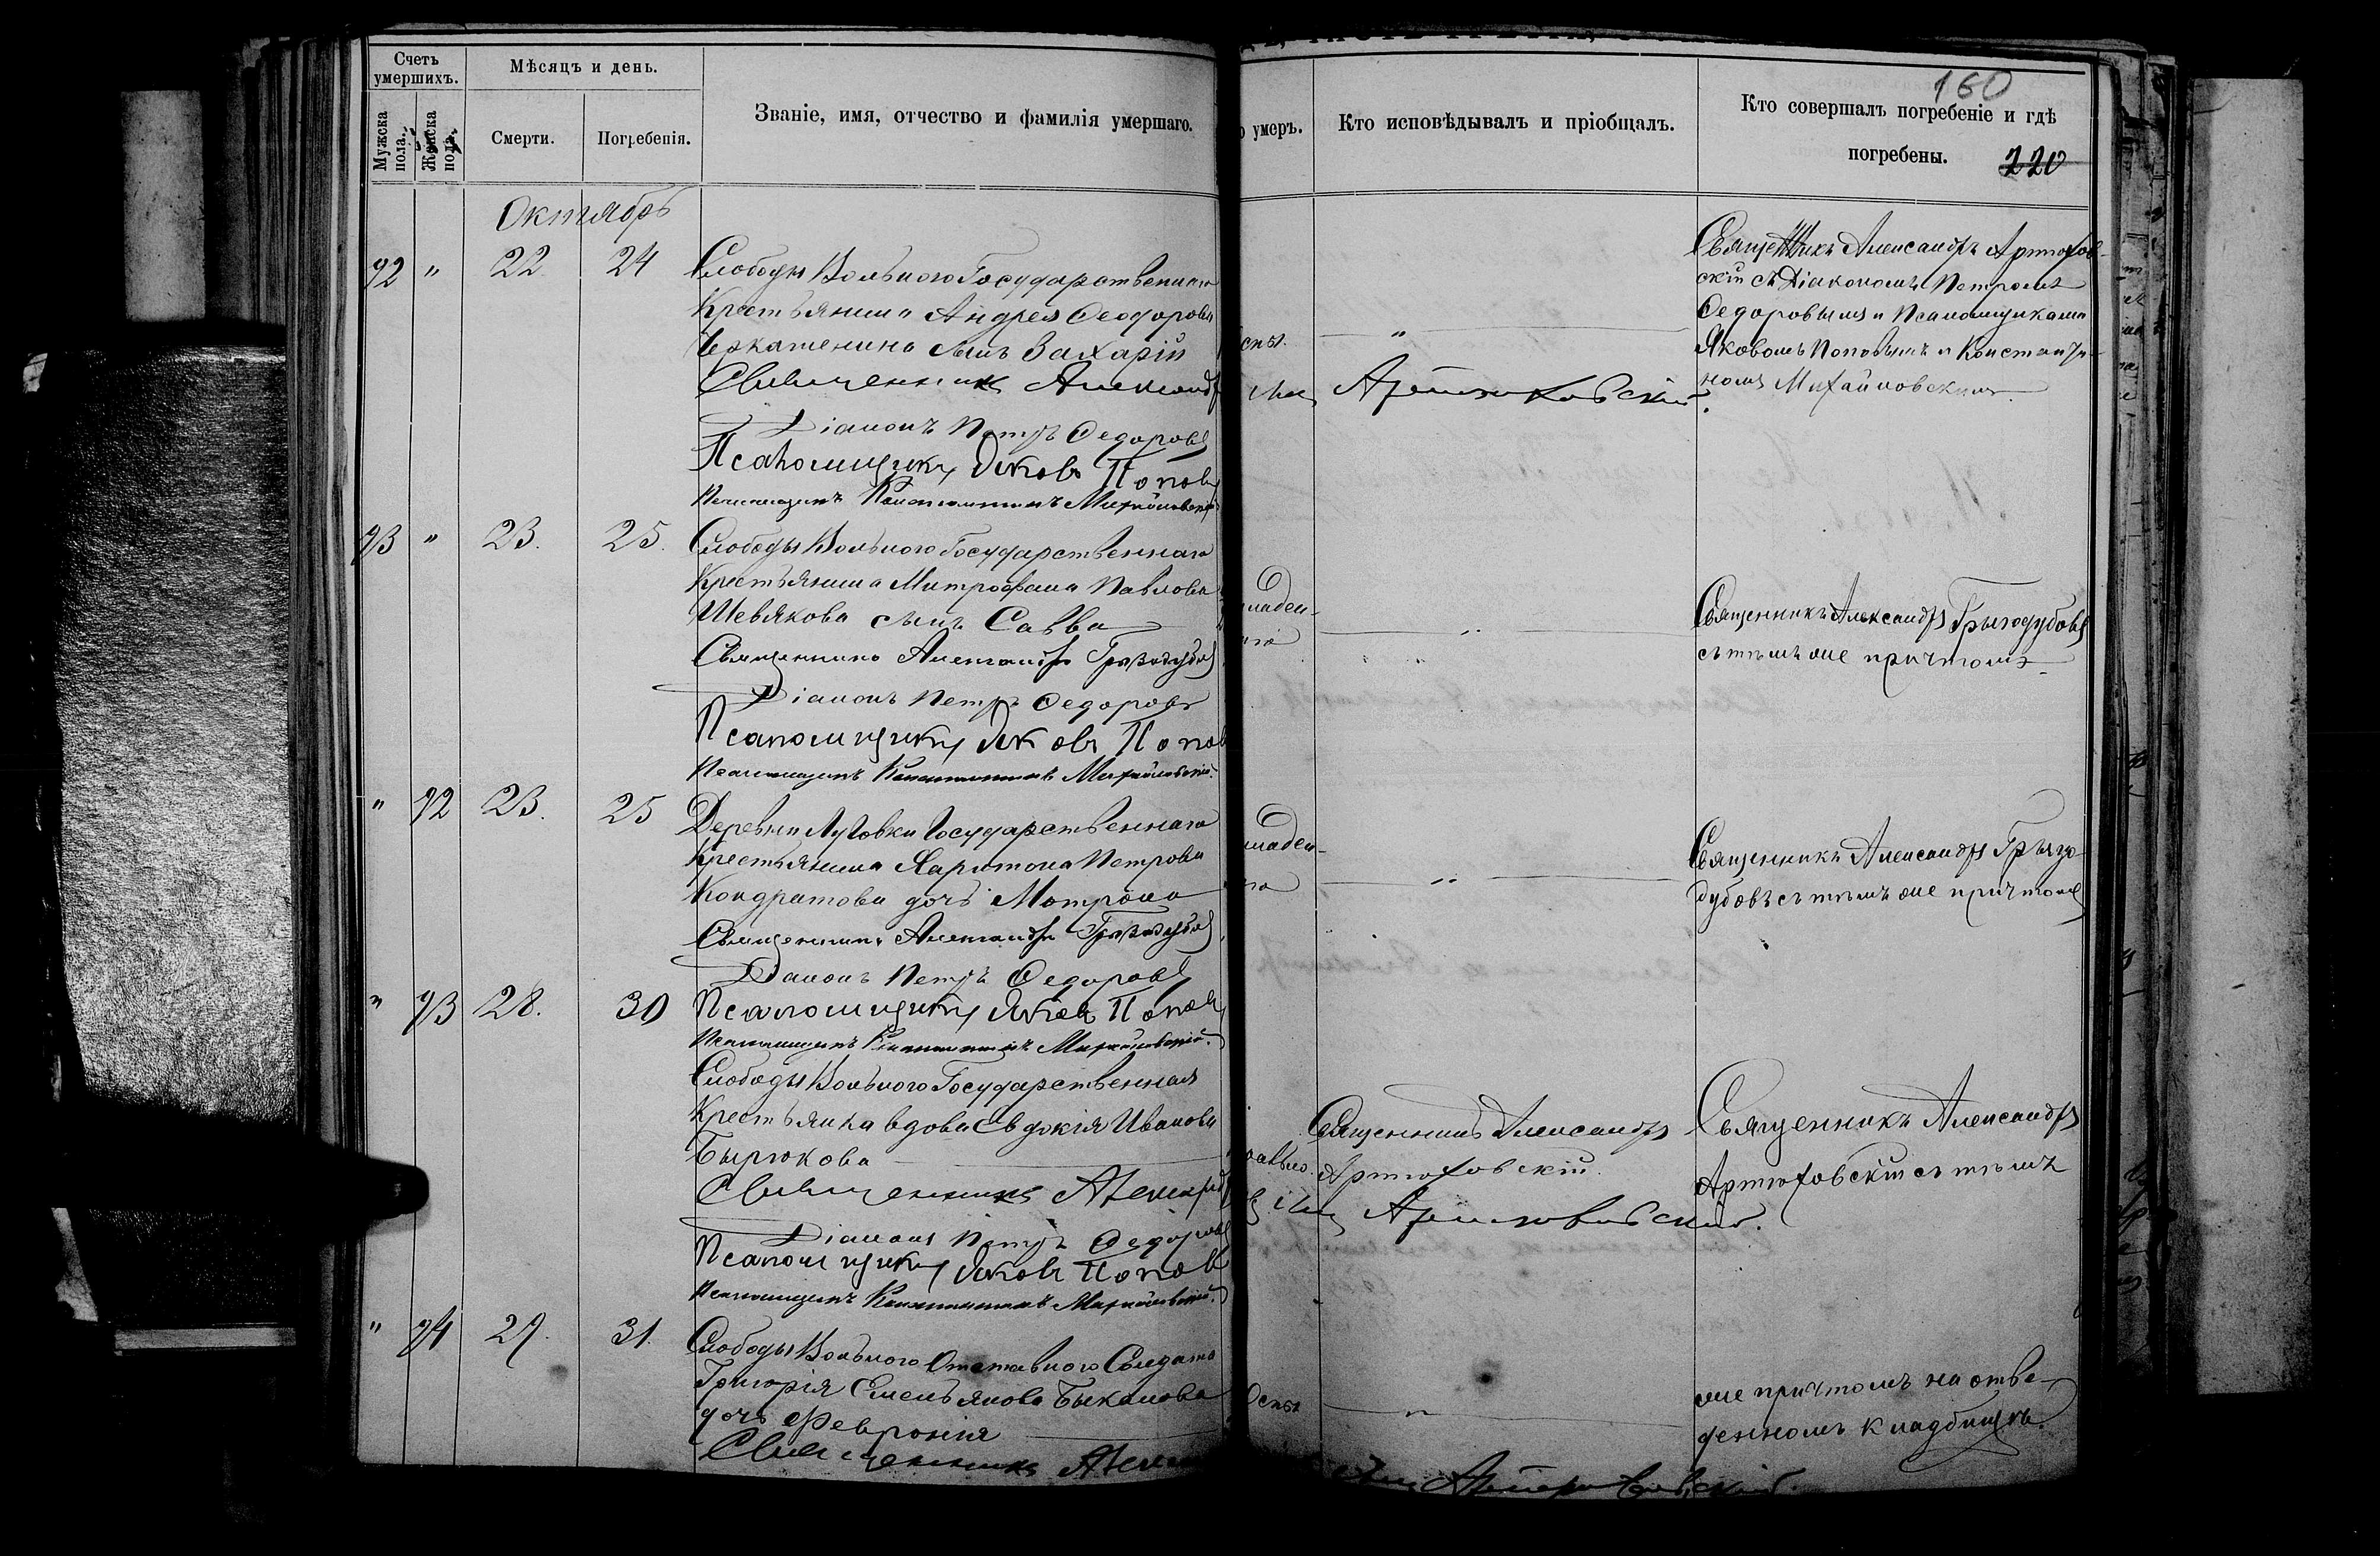 Счетъ умершихъ.
Мѣсяцъ и день.
Званіе, имя, отчество и фамилія умершаго.
Мужска пола.
Женска пола.
Смерти.
Погребенія.
умеръ.
Кто исповѣдывалъ и пріобщалъ.
160
Кто совершалъ погребеніе и гдѣ
погребены.
220
Октябрь
92 " 22 24
Слободы Вольнаго Государственнаго
Крестьянина Андрея Феодорова
сынъ Захарій
Священникъ Александръ
Діаконъ Петръ Федоровъ
Псаломщикъ Яковъ Поповъ
Псаломщикъ Константинъ Михайловскій
оспы.
"
Артюховскій
Священникъ Александръ Артюхов-
скій съ Діакономъ Петромъ
Федоровымъ и Псаломщиками
Яковомъ Поповымъ и Константи-
номъ Михайловскимъ.
93 " 23. 25.
Слободы Вольнаго Государственнаго
Крестьянина Митрофана Павлова
Шевякова сынъ Савва
Священникъ Александръ Грызодубовъ
Діаконъ Петръ Федоровъ
Псаломщикъ Яковъ Поповъ
Псаломщикъ Константинъ Михайловскій.
"
Священникъ Александръ Грызодубовъ
съ тѣмъ же причтомъ
" 92 23. 25
Деревни Луговки Государственнаго
Крестьянина Харитона Петрова
Кондратова дочь Матрона
Священникъ Александръ Грызодубовъ
Діаконъ Петръ Федоровъ
Псаломщикъ Яковъ Поповъ
Псаломщикъ Константинъ Михайловскій.
"
Священникъ Александръ Грызо-
дубовъ съ тѣмъ же причтомъ
" 93 28. 30
Слободы Вольнаго Государственная
Крестьянка вдова Евдокія Иванова
Бырюкова
Священникъ Александръ
Діаконъ Петръ Федоровъ
Псаломщикъ Яковъ Поповъ
Псаломщикъ Константинъ Михайловскій.
Священникъ Александръ
Артюховскій.
Артюховскій.
Священникъ Александръ
Артюховскій съ тѣмъ
" 94 29. 31.
Слободы Вольнаго Отставного Солдата
Григорія Емельянова Быканова
дочь Февронія
Священникъ
Оспы
"
Артюховскій.
же причтомъ на отве-
денномъ кладбищѣ.